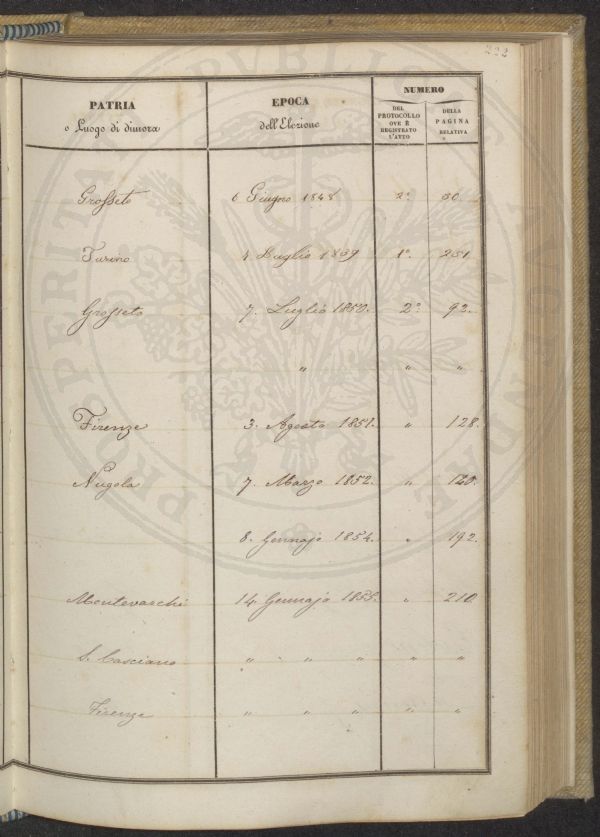 222
PATRIA
o Luogo di dimora
EPOCA
dell'Elezione
NUMERO
DEL
PROTOCOLLO
OVE È
REGISTRATO
L'ATTO
DELLA
PAGINA
RELATIVA
Grosseto 6 Giugno 1848 2° 50
Torino 4 Luglio 1839 1° 251
Grosseto 7. Luglio 1850. 2° 92.
" " "
Firenze 3. Agosto 1851. " 128.
Nugola 7. Marzo 1852. " 120.
8. Gennajo 1854. " 192.
Montevarchi 14. Gennajo 1855. " 210.
S. Casciano " " " " " "
Firenze " " " " " "
PROSPERITA PUBLICAE AUGENDAE